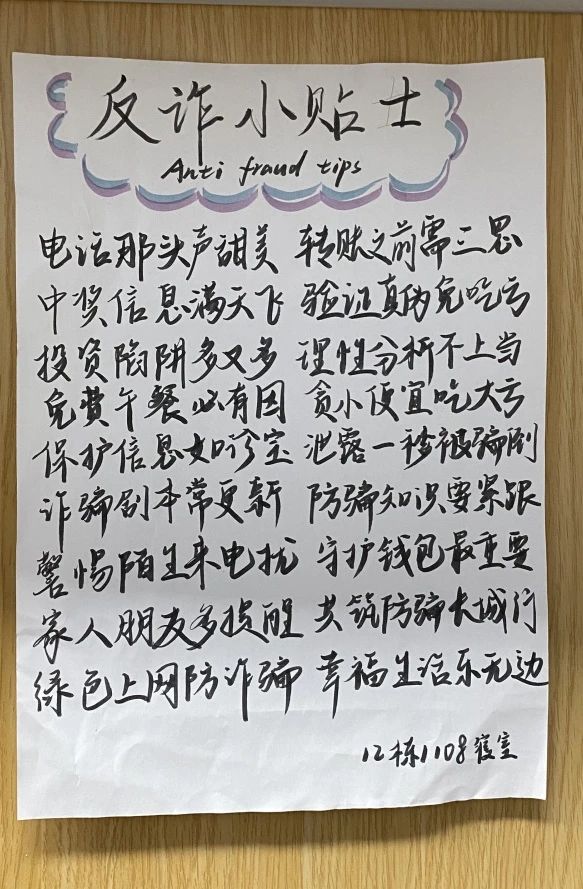 反诈小贴士
Anti fraud tips
电话那头声甜美 转账之前需三思
中奖信息满天飞 验证真伪免吃亏
投资陷阱多又多 理性分析不上当
免费午餐必有因 贪小便宜吃大亏
保护信息如珍宝 泄露一秒被骗到
诈骗剧本常更新 防骗知识要紧跟
警惕陌生来电扰 守护钱包最重要
家人朋友多提醒 共筑防骗长城门
绿色上网防诈骗 幸福生活乐无边
12栋1108寝室